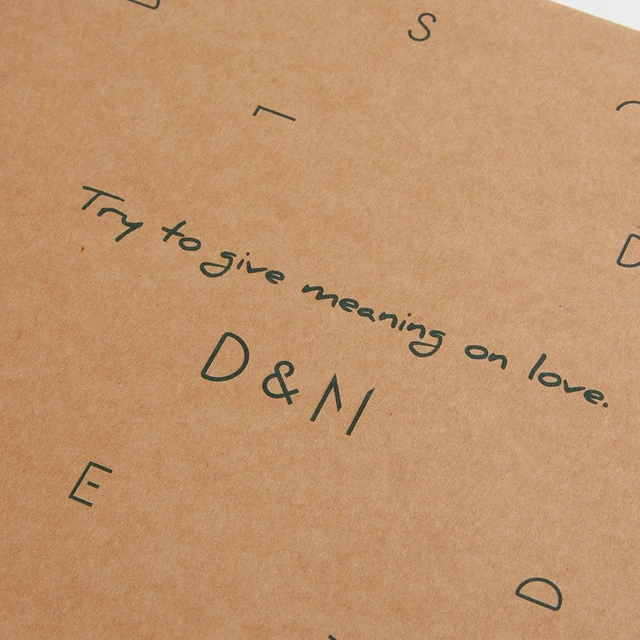 S
D
Try to give meaning on love.
D&N
E
D